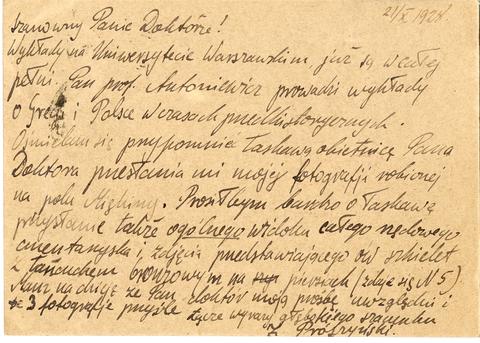 21/X 1928
Szanowny Panie Doktorze!
Wykłady na Uniwersytecie Warszawskim już są w całej
pełni. Pan prof. Antoniewicz prowadzi wykłady
o Grecji i Polsce w czasach przedhistorycznych.
Ośmielam się przypomnieć łaskawą obietnicę Pana
Doktora przesłania mi mojej fotografji robionej
na polu. Prosiłbym bardzo o łaskawą
przysłanie także ogólnego widoku całego rzędowego
cmentarzyska i zdjęcia przedstawiającego ów szkielet
z łańcuchem bronzowym na piersiach (zdaje się N 5).
Mam nadzieję że Pan doktór moją prośbę uwzględni i
te 3 fotografje przyśle. Łączę wyrazy głębokiego szacunku
Z. Prószyński.